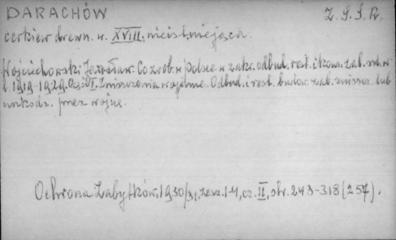 DARACHÓW Z.S.S.R.
cerkiew drewn. w. XVIII, nieistniejąca.
Wojciechowski Jarosław. Co zrob. w Polsce w zakr. odbud. rest. i kons. zab. nd. w
l. 1919-1929. Część I. Zniszczenia wojenne. Odbud. i rest. budow. zab. zniszcz. lub
uszkodz. przez wojnę.
Ochrona Zabytków, 1930/31, zesz. 1-4, cz. II, str. 243-318 (257).